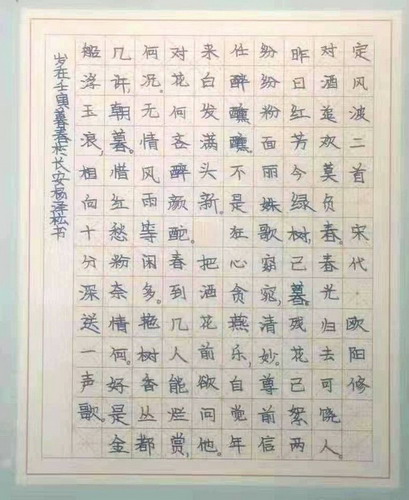 定风波二首 宋代·欧阳修
对酒追欢莫负春。春光归去可饶人。
昨日红芳今绿树,已暮。残花已絮两
纷纷粉面丽姝歌窈窕,清妙。尊前信
任醉醺醺不是狂心贪燕乐,自觉年
来白发满头新。 把酒花前欲问他。
对花何吝醉颜酡。春到几人能烂赏,
何沉。无情风雨等闲多。艳树香丛都
几许,朝暮。惜红愁粉奈情何。好是金
船浮玉浪,相向十分深送一声歌。
岁在壬寅暮春于长安杨泽松书